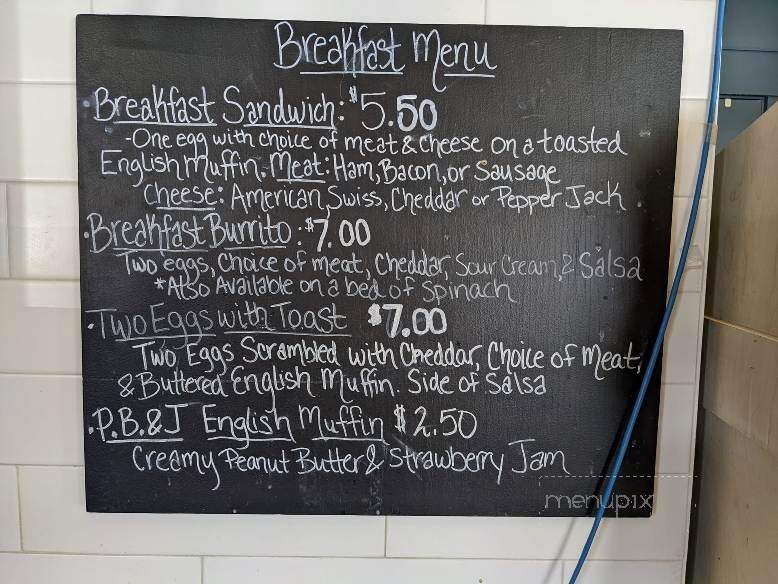 Breakfast Menu
• Breakfast Sandwich: $5.50
-One egg with choice of meat & cheese on a toasted
English Muffin. Meat: Ham, Bacon, or Sausage
Cheese: American, Swiss, Cheddar or Pepper Jack.
• Breakfast Burrito: $7.00
Two eggs, Choice of meat, Cheddar, Sour Cream, & Salsa
*Also Available on a bed of Spinach
• Two Eggs with Toast $7.00
Two Eggs Scrambled with Cheddar, Choice of Meat,
& Buttered English Muffin. Side of Salsa
• P.B.&J English Muffin $2.50
Creamy Peanut Butter & Strawberry Jam
menupix